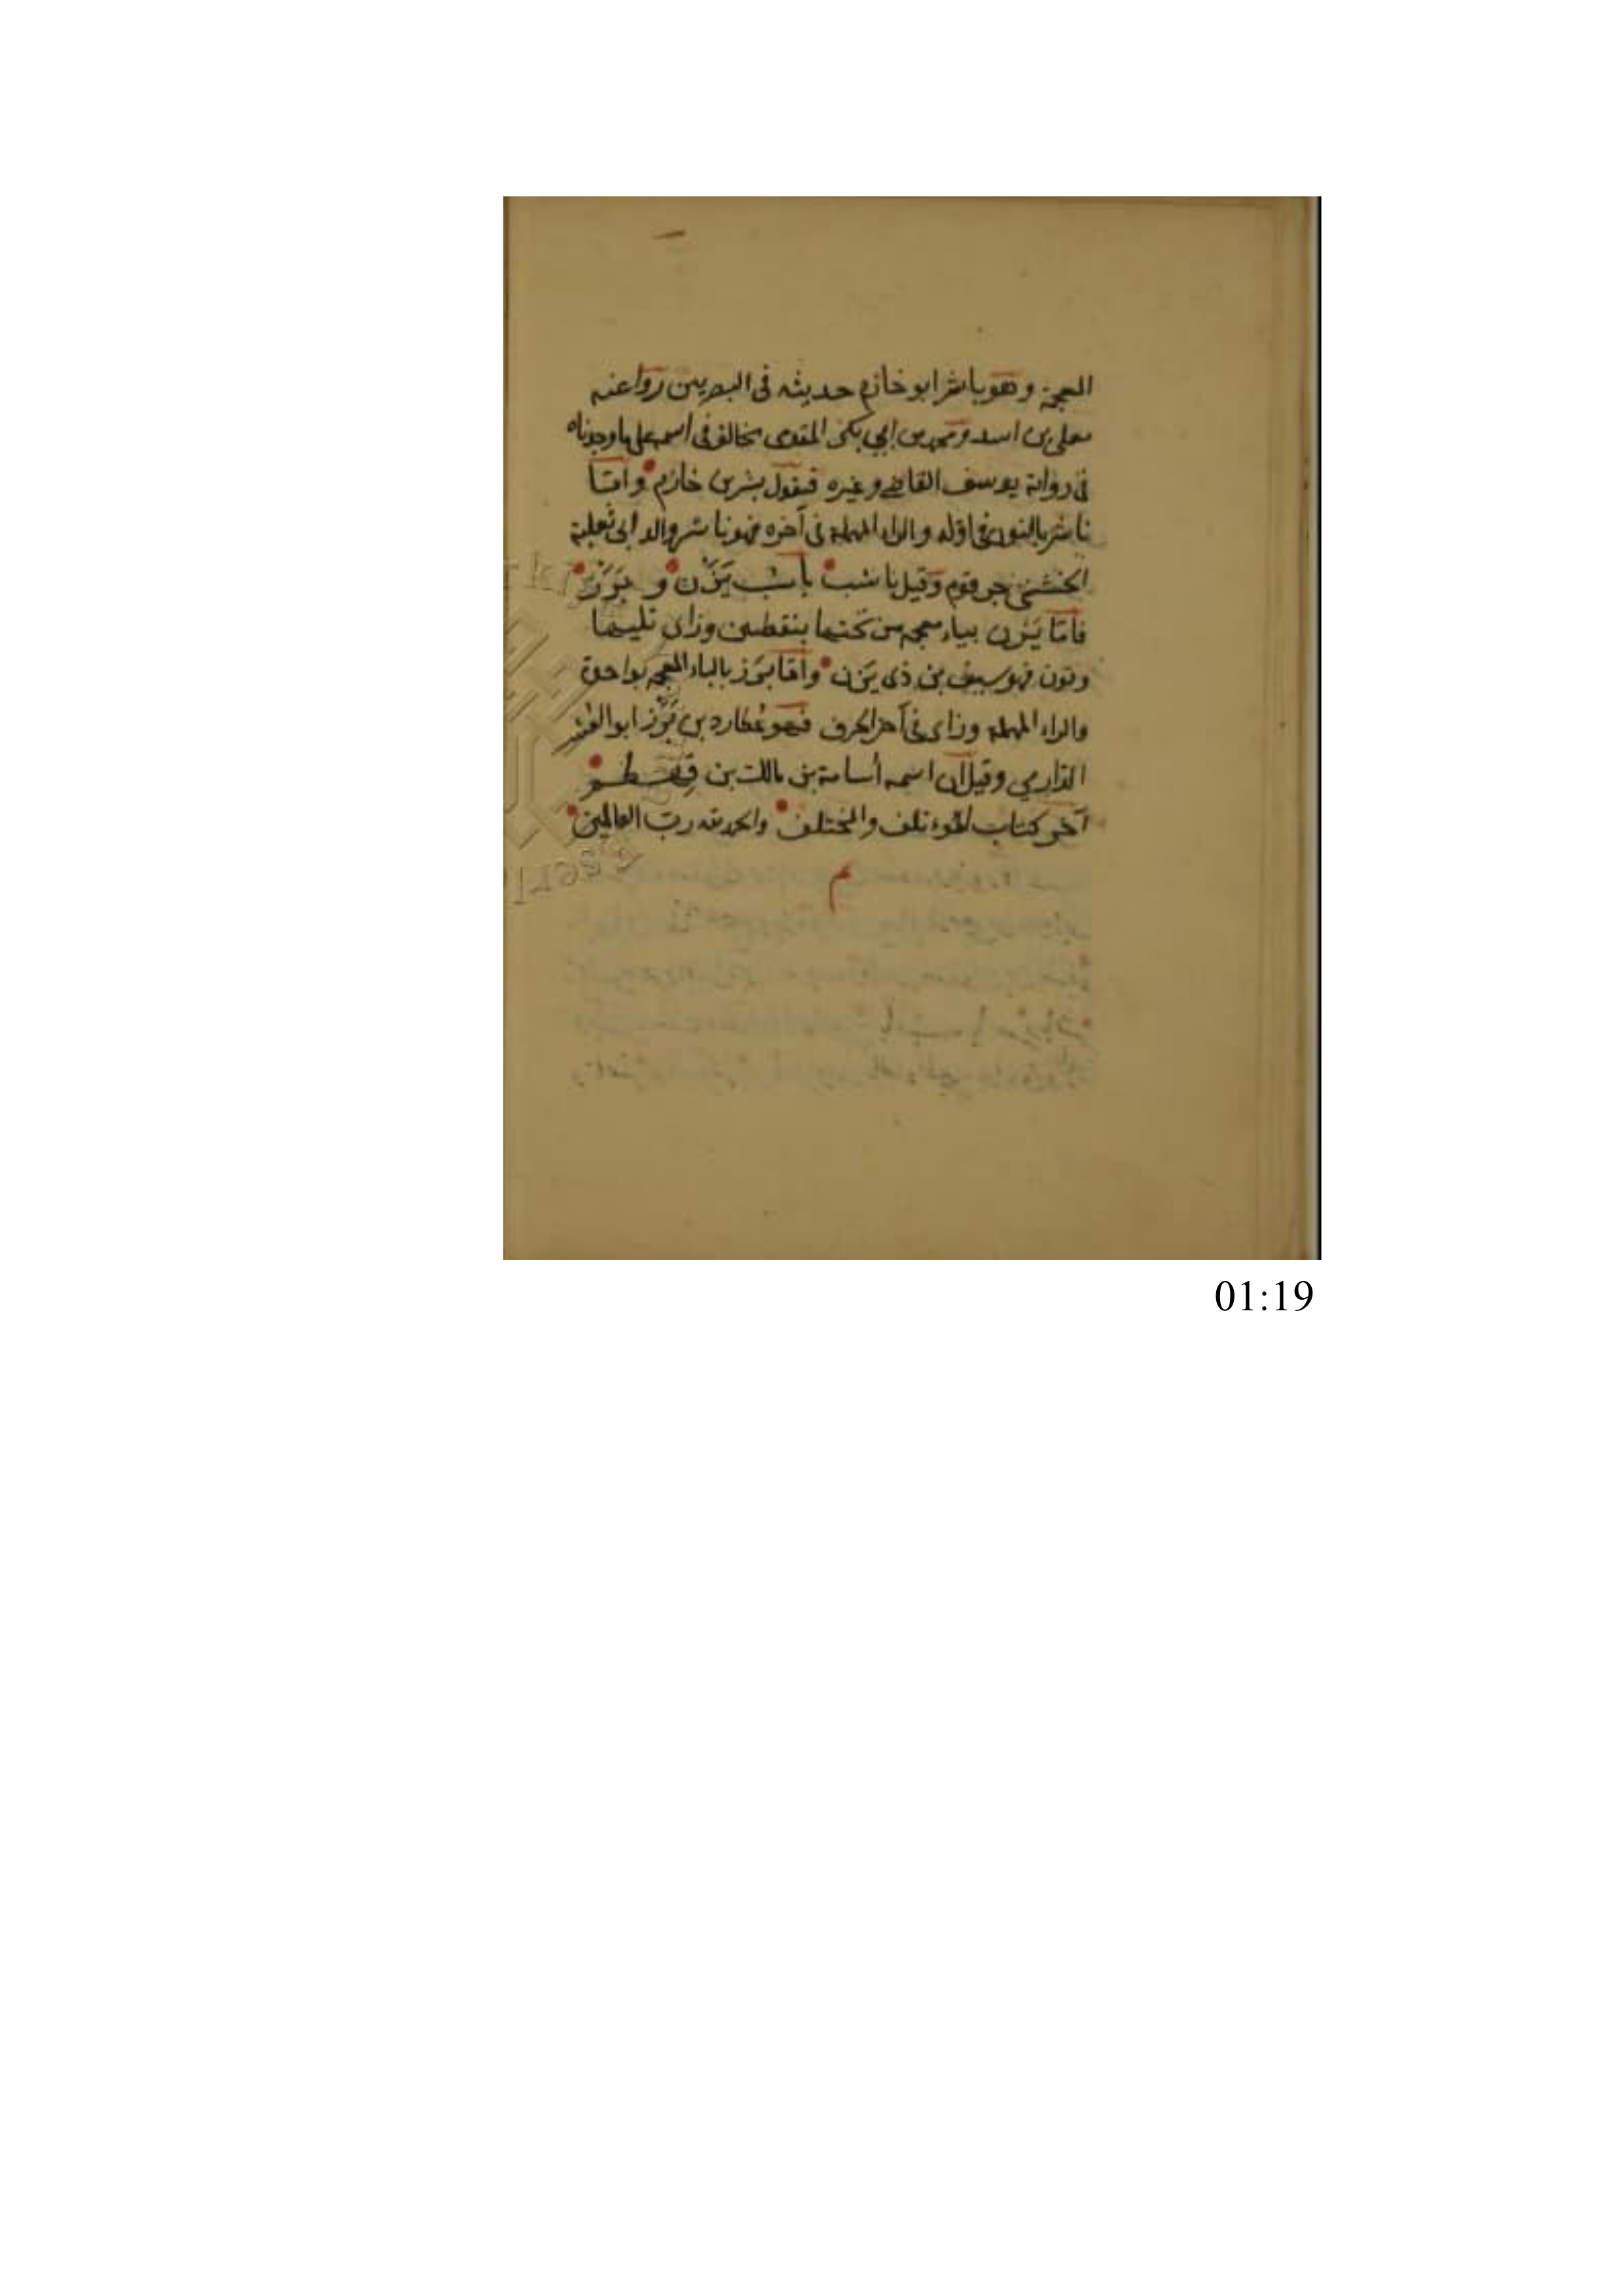 المعجمة وهو باشر ابو خازم حديثه فى البصريين روا عنه
معلى بن اسد ومحمد بن ابي بكر المقدمى يخالف فى اسمه على ما وجدناه
فى رواية يوسف القاضى وغيره فيقول بشر بن خازم وامّا
ناشر بالنون فى اوّله والراء المهملة فى آخره فهو ناشر والد ابى ثعلبة
الخشنى جرثوم وقيل ناشب باب يَزَن و بَرَز
فامّا يَزَن بياء معجمة من تحتها بنقطتين وزاى تليها
ونون فهو سيف بن ذى يَزَن وامّا بَرَز بالباء المعجمة بواحدة
والراء المهملة وزاى فى آخر الحرف فهو عُطارد بن بَرَز ابو العُشراء
الدّارمي وقيل انّ اسمه أسامة بن مالك بن قِهطم
آخر كتاب المؤتلف والمختلف والحمد لله ربّ العالمين
م
01:19